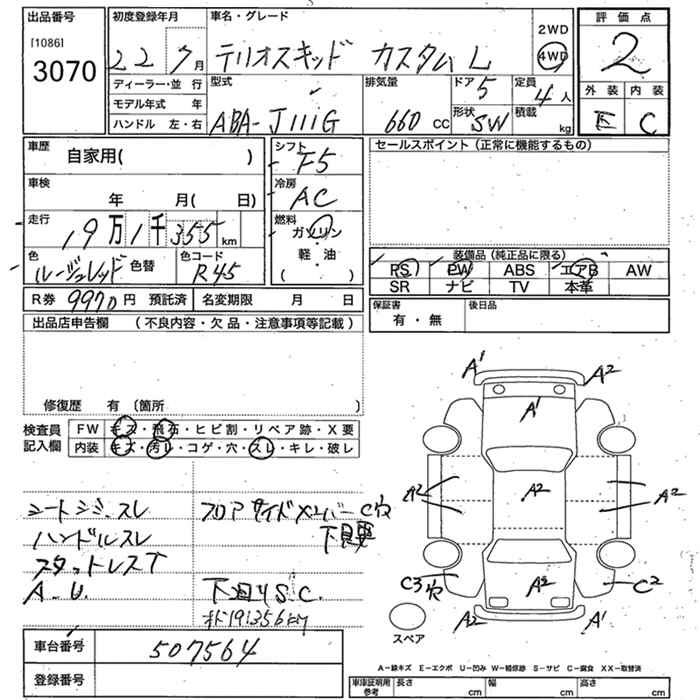 出品番号
[1086]
3070
初度登録年月
22 7月
ディーラー・並 行
モデル年式 年
ハンドル 左・右
車名・グレード
テリオスキッド カスタムL
2WD
4WD
型式
ABA-J111G
排気量
660 CC
ドア 5
形状 SW
定員 4人
積載 kg
評価点
2
外装 内装
E C
車歴
自家用( )
車検
年 月( 日)
走行
19万1千355km
色
ルージュレッド 色替
色コード
R45
シフト
F5
冷房
AC
燃料
ガソリン
軽・油
( )
R券 9970円 預託済 名変期限 月 日
セールスポイント(正常に機能するもの)
装備品(純正品に限る)
PS PW ABS エアB AW
SR ナビ TV 本革
保証書
有・無
後日品
出品店申告欄 (不良内容・欠品・注意事項等記載)
修復歴 有 (箇所 )
検査員
記入欄
FW キズ・飛石・ヒビ割・リペア跡・X要
内装 キズ・汚レ・コゲ・穴・スレ・キレ・破レ
シートシミ.スレ
ハンドルスレ
スタットレスT
A-U.
フロアサイドメンバーC穴
下良要
下回りS.C.
オド191356km
A1 A2
A1
A2 A2 A2
C3穴 A2 C2
A2 A1
スペア
車台番号 507564
登録番号
A-線キズ E-エクボ U-凹み W-補修跡 S-サビ C-腐食 XX-取替済
車庫証明用
参考
長さ cm 幅 cm 高さ cm